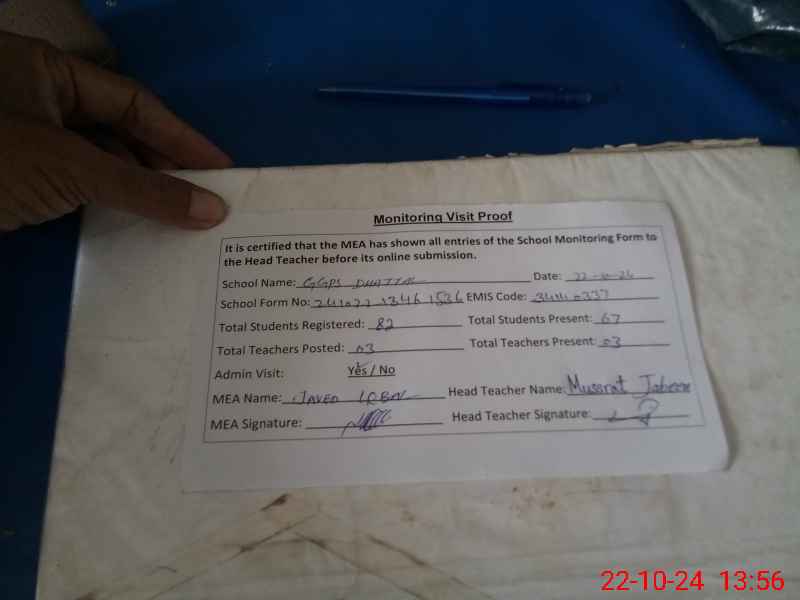 Monitoring Visit Proof
It is certified that the MEA has shown all entries of the School Monitoring Form to
the Head Teacher before its online submission.
School Name: GGPS Date: 22-10-24
School Form No: 241022 1346 1536 EMIS Code: 34410337
Total Students Registered: 82 Total Students Present: 67
Total Teachers Posted: 03 Total Teachers Present: 03
Admin Visit: Yes / No
MEA Name: Javed Iqbal Head Teacher Name: Mussrat Jabeen
MEA Signature: Head Teacher Signature:
22-10-24 13:56